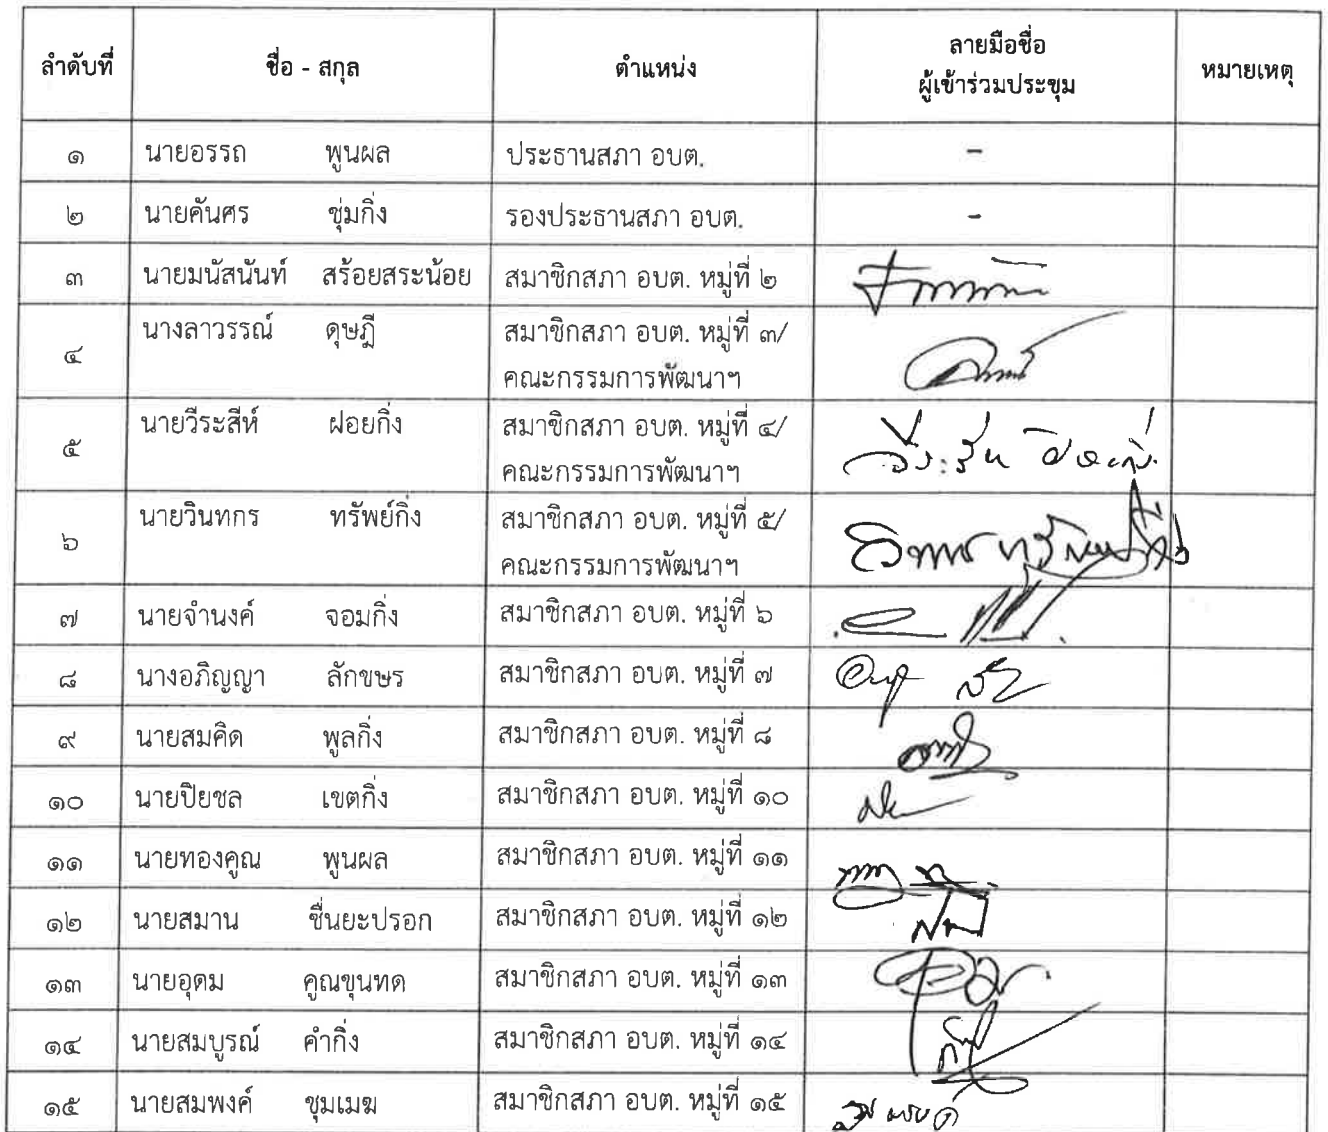 ลำดับที่ ชื่อ - สกุล ตำแหน่ง ลายมือชื่อ หมายเหตุ
ผู้เข้าร่วมประชุม
๑ นายอรรถ พูนผล ประธานสภา อบต. -
๒ นายคันศร ชุ่มกิ่ง รองประธานสภา อบต. -
๓ นายมนัสนันท์ สร้อยสระน้อย สมาชิกสภา อบต. หมู่ที่ ๒
๔ นางลาวรรณ์ ดุษฎี สมาชิกสภา อบต. หมู่ที่ ๓/
คณะกรรมการพัฒนาฯ
๕ นายวีระสีห์ ฝอยกิ่ง สมาชิกสภา อบต. หมู่ที่ ๔/
คณะกรรมการพัฒนาฯ
๖ นายวินทกร ทรัพย์กิ่ง สมาชิกสภา อบต. หมู่ที่ ๕/
คณะกรรมการพัฒนาฯ
๗ นายจำนงค์ จอมกิ่ง สมาชิกสภา อบต. หมู่ที่ ๖
๘ นางอภิญญา ลักขษร สมาชิกสภา อบต. หมู่ที่ ๗
๙ นายสมคิด พูลกิ่ง สมาชิกสภา อบต. หมู่ที่ ๘
๑๐ นายปิยชล เขตกิ่ง สมาชิกสภา อบต. หมู่ที่ ๑๐
๑๑ นายทองคูณ พูนผล สมาชิกสภา อบต. หมู่ที่ ๑๑
๑๒ นายสมาน ชื่นยะปรอก สมาชิกสภา อบต. หมู่ที่ ๑๒
๑๓ นายอุดม คูณขุนทด สมาชิกสภา อบต. หมู่ที่ ๑๓
๑๔ นายสมบูรณ์ คำกิ่ง สมาชิกสภา อบต. หมู่ที่ ๑๔
๑๕ นายสมพงค์ ชุมเมฆ สมาชิกสภา อบต. หมู่ที่ ๑๕